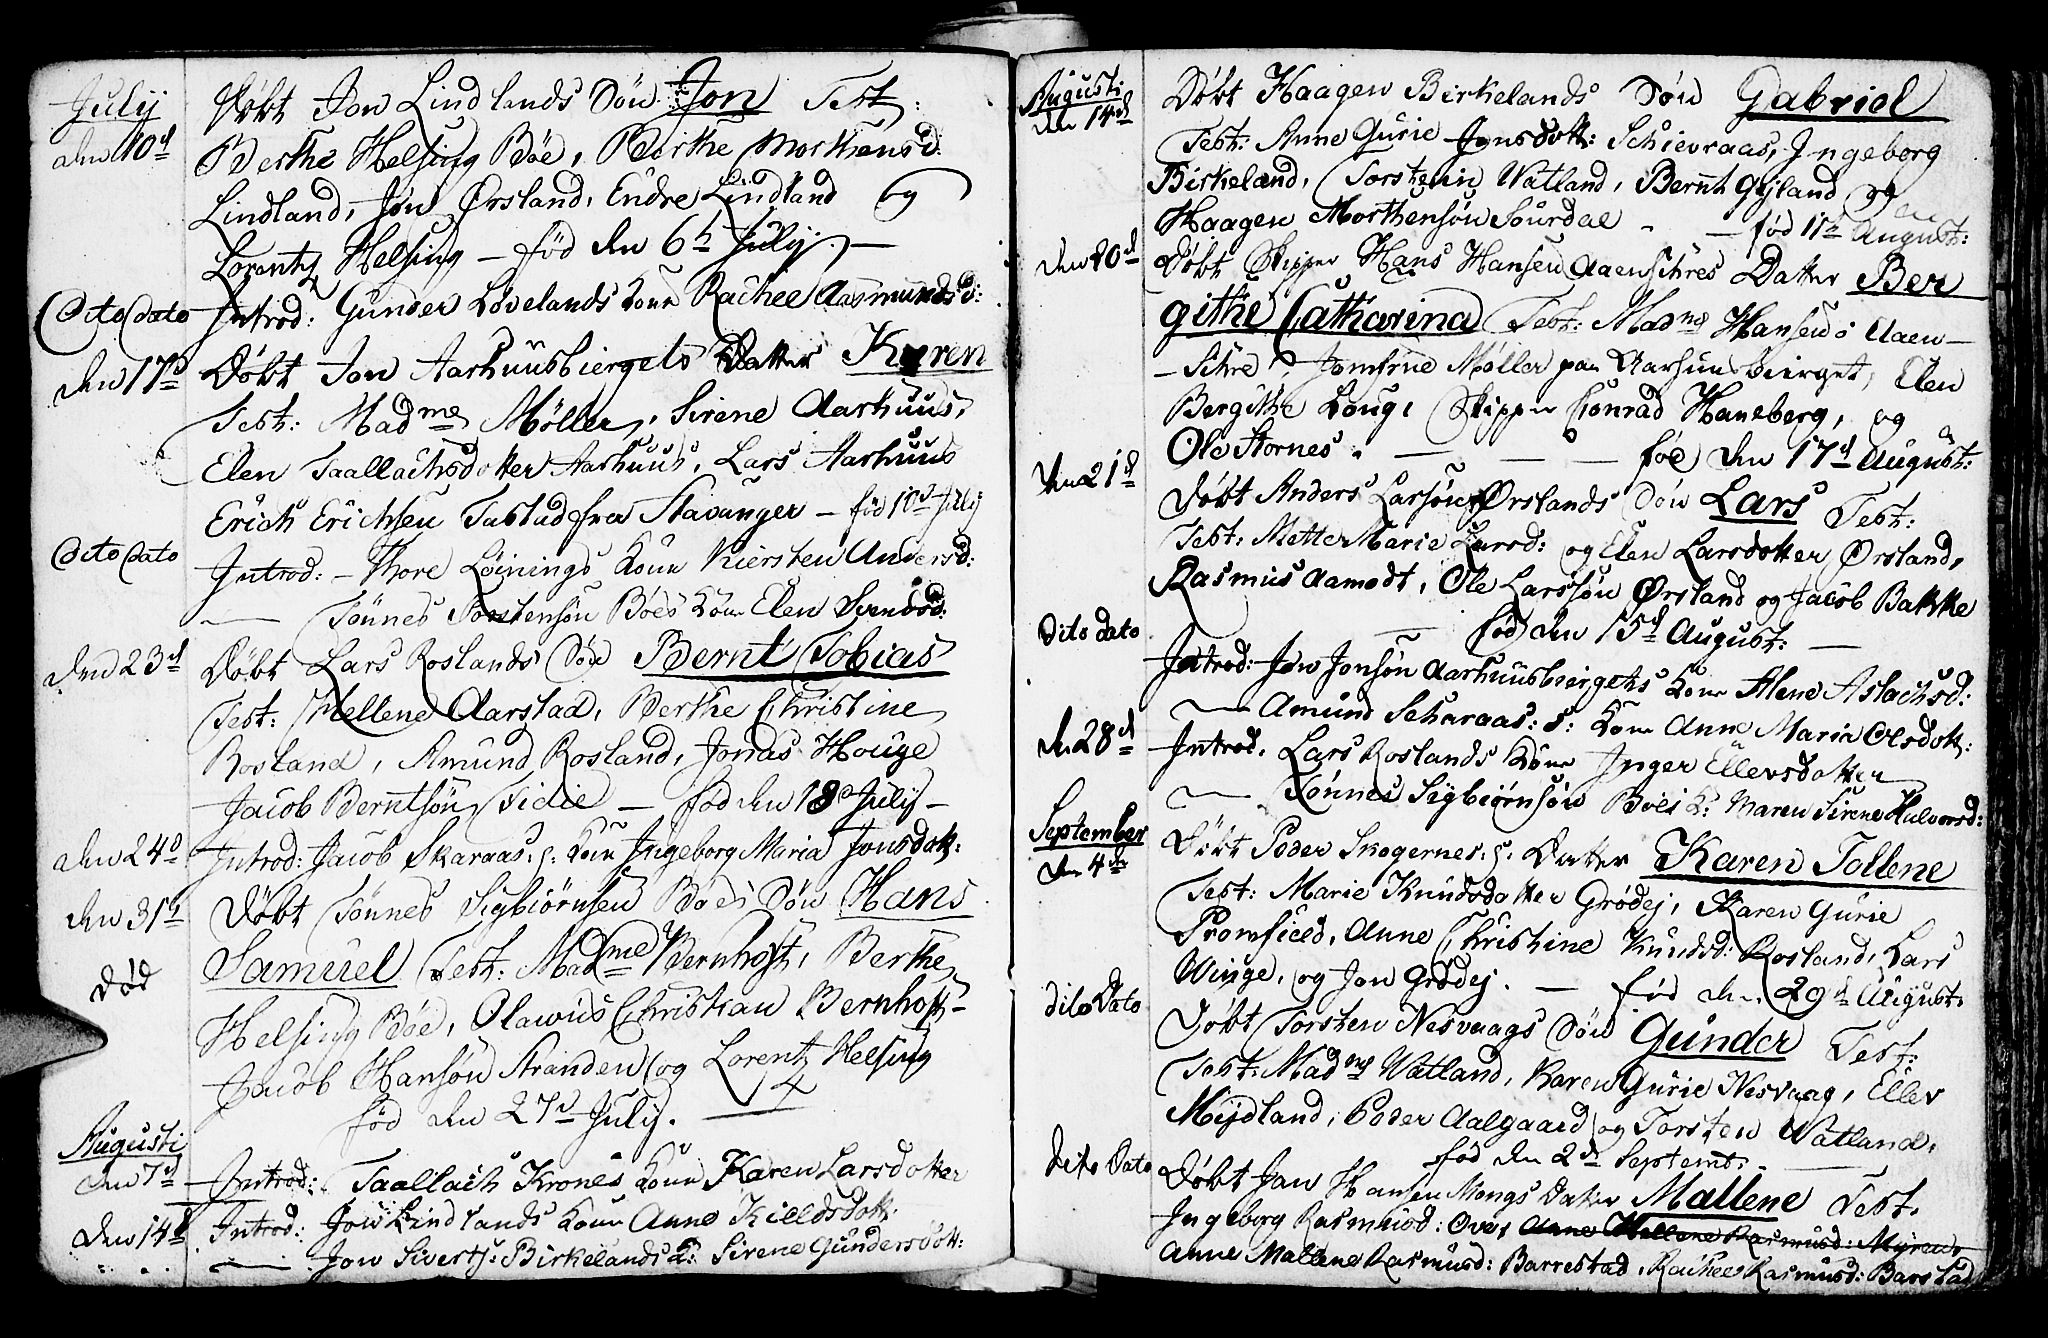 July
den 10d Døbt Jon Lindlands Søn Jon Test:
Berthe Helsing Bøe, Berthe Morthensd:
Lindland, Jon Ørsland, Endre Lindland og
Lorentz Helsing – fød den 6te July. –
Dito Dato Introd: Gunder Løvelands Kone Rachel Aasmundsd:
den 17d Døbt Jon Aarhuusbiergets Datter Karen
Test: Madme Møller, Sirene Aarhuus,
Elen Taallachsdotter Aarhuus, Lars Aarhuus
Erich Erichsen Tastad fra Stavanger – fød 10d July
Dito Dato Introd: – Thore Løinings Kone Kiersten Andersd:
— Tønnes Torstensøn Bøes Kone Elen Svendsd:
den 23d Døbt Lars Roslands Søn Bernt Tobias
Test: Mellene Aarstad, Berthe Christine
Rosland, Amund Rosland, Jonas Houge
Jacob Berntsøn Eidie – fød den 18d July –
den 24d Introd: Jacob Skaraas: s: Kone Ingeborg Maria Jonsdott:
den 31te Døbt Tønnes Sigbiørnsen Bøes Søn Hans
Død Samuel Test: Madme Bernhoft, Berthe
Helsing Bøe, Olawus Christian Bernhoft
Jacob Hansøn Stranden og Lorentz Helsing
fød den 27d July. —
Augusti
den 7d Introd: Taallach Krones Kone Karen Larsdotter
den 14d Introd: Jon Lindlands Kone Anne Kieldsdott:
— Jon Siverts: Birkelands K: Sirene Gundersdott:
Augusti
den 14d Døbt Haagen Birkelands Søn Gabriel
Test: Anne Gurie Jonsdott: Schievraas, Ingeborg
Birkeland, Torstein Watland, Bernt Gyland og
Haagen Morthensøn Sourdal - – fød 11te August:
den 20d Døbt Skipper Hans Hansen Aaensires Datter Ber
githe Catharina Test: Madme Hansens Aaen–
–Sire, Jomfrue Møller paa Aarhuusbierget, Elen
Bergithe Loug, Skipper Conrad Haneberg, og
Ole Stornes. — — – fød den 17d August:
den 21d Døbt Anders Larsøn Ørslands Søn Lars Test:
Test: Mette Marie Larsd: og Elen Larsdotter Ørsland,
Rasmus Aamodt, Ole Larssøn Ørsland og Jacob Bakke
— fød den 15d August: —
Dito Dato Introd: Jon Jonsøn Aarhuusbiergets Kone Alene Aslachsd:
— Amund Scharaas: s: Kone Anne Maria Olsdott:
den 28d Introd. Lars Roslands Kone Inger Ellevsdotter
— Tønnes Sigbiørnsøn Bøes K: Maren Sirene Halvorsd:
September
den 4de Døbt Peder Skogernes: s: Datter Karen Tollene
Test: Marie Knudsdotter Grødej, Karen Gurie
Promficed, Anne Christine Knudsd: Rosland, Lars
Winge, og Jon Grødej. — fød den 29d August.
Dito Dato Døbt Torsten Nesvaags Søn Gunder Test:
Test: Madme Watland, Karen Gurie Nesvaag, Ellev
Mydland, Peder Aalgaard og Torsten Watland.
fød den 2d Septemb. —
Dito Dato Døbt Jan Hansen Mongs Datter Mallene Test.
Ingeborg Rasmusd: Over, Anne Mallene Rasmusd: Myren,
Anne Mallene Rasmusd: Barrestad, Rachel Rasmusd: Barstad